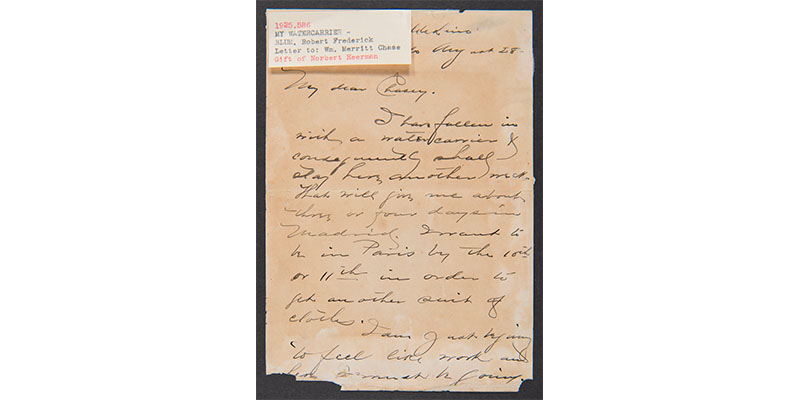 1925.586
MY WATERCARRIER -
BLUM, Robert Frederick
Letter to: Wm. Merritt Chase
Gift of Norbert Heerman
August 28-
My dear Chasey.
I have fallen in
with a watercarrier &
consequently shall
stay here another week.
That will give me about
three or four days in
Madrid. I want to
be in Paris by the 10th
or 11th in order to
get another suit of
clothes.
I am just trying
to feel like work and
here I must be going.